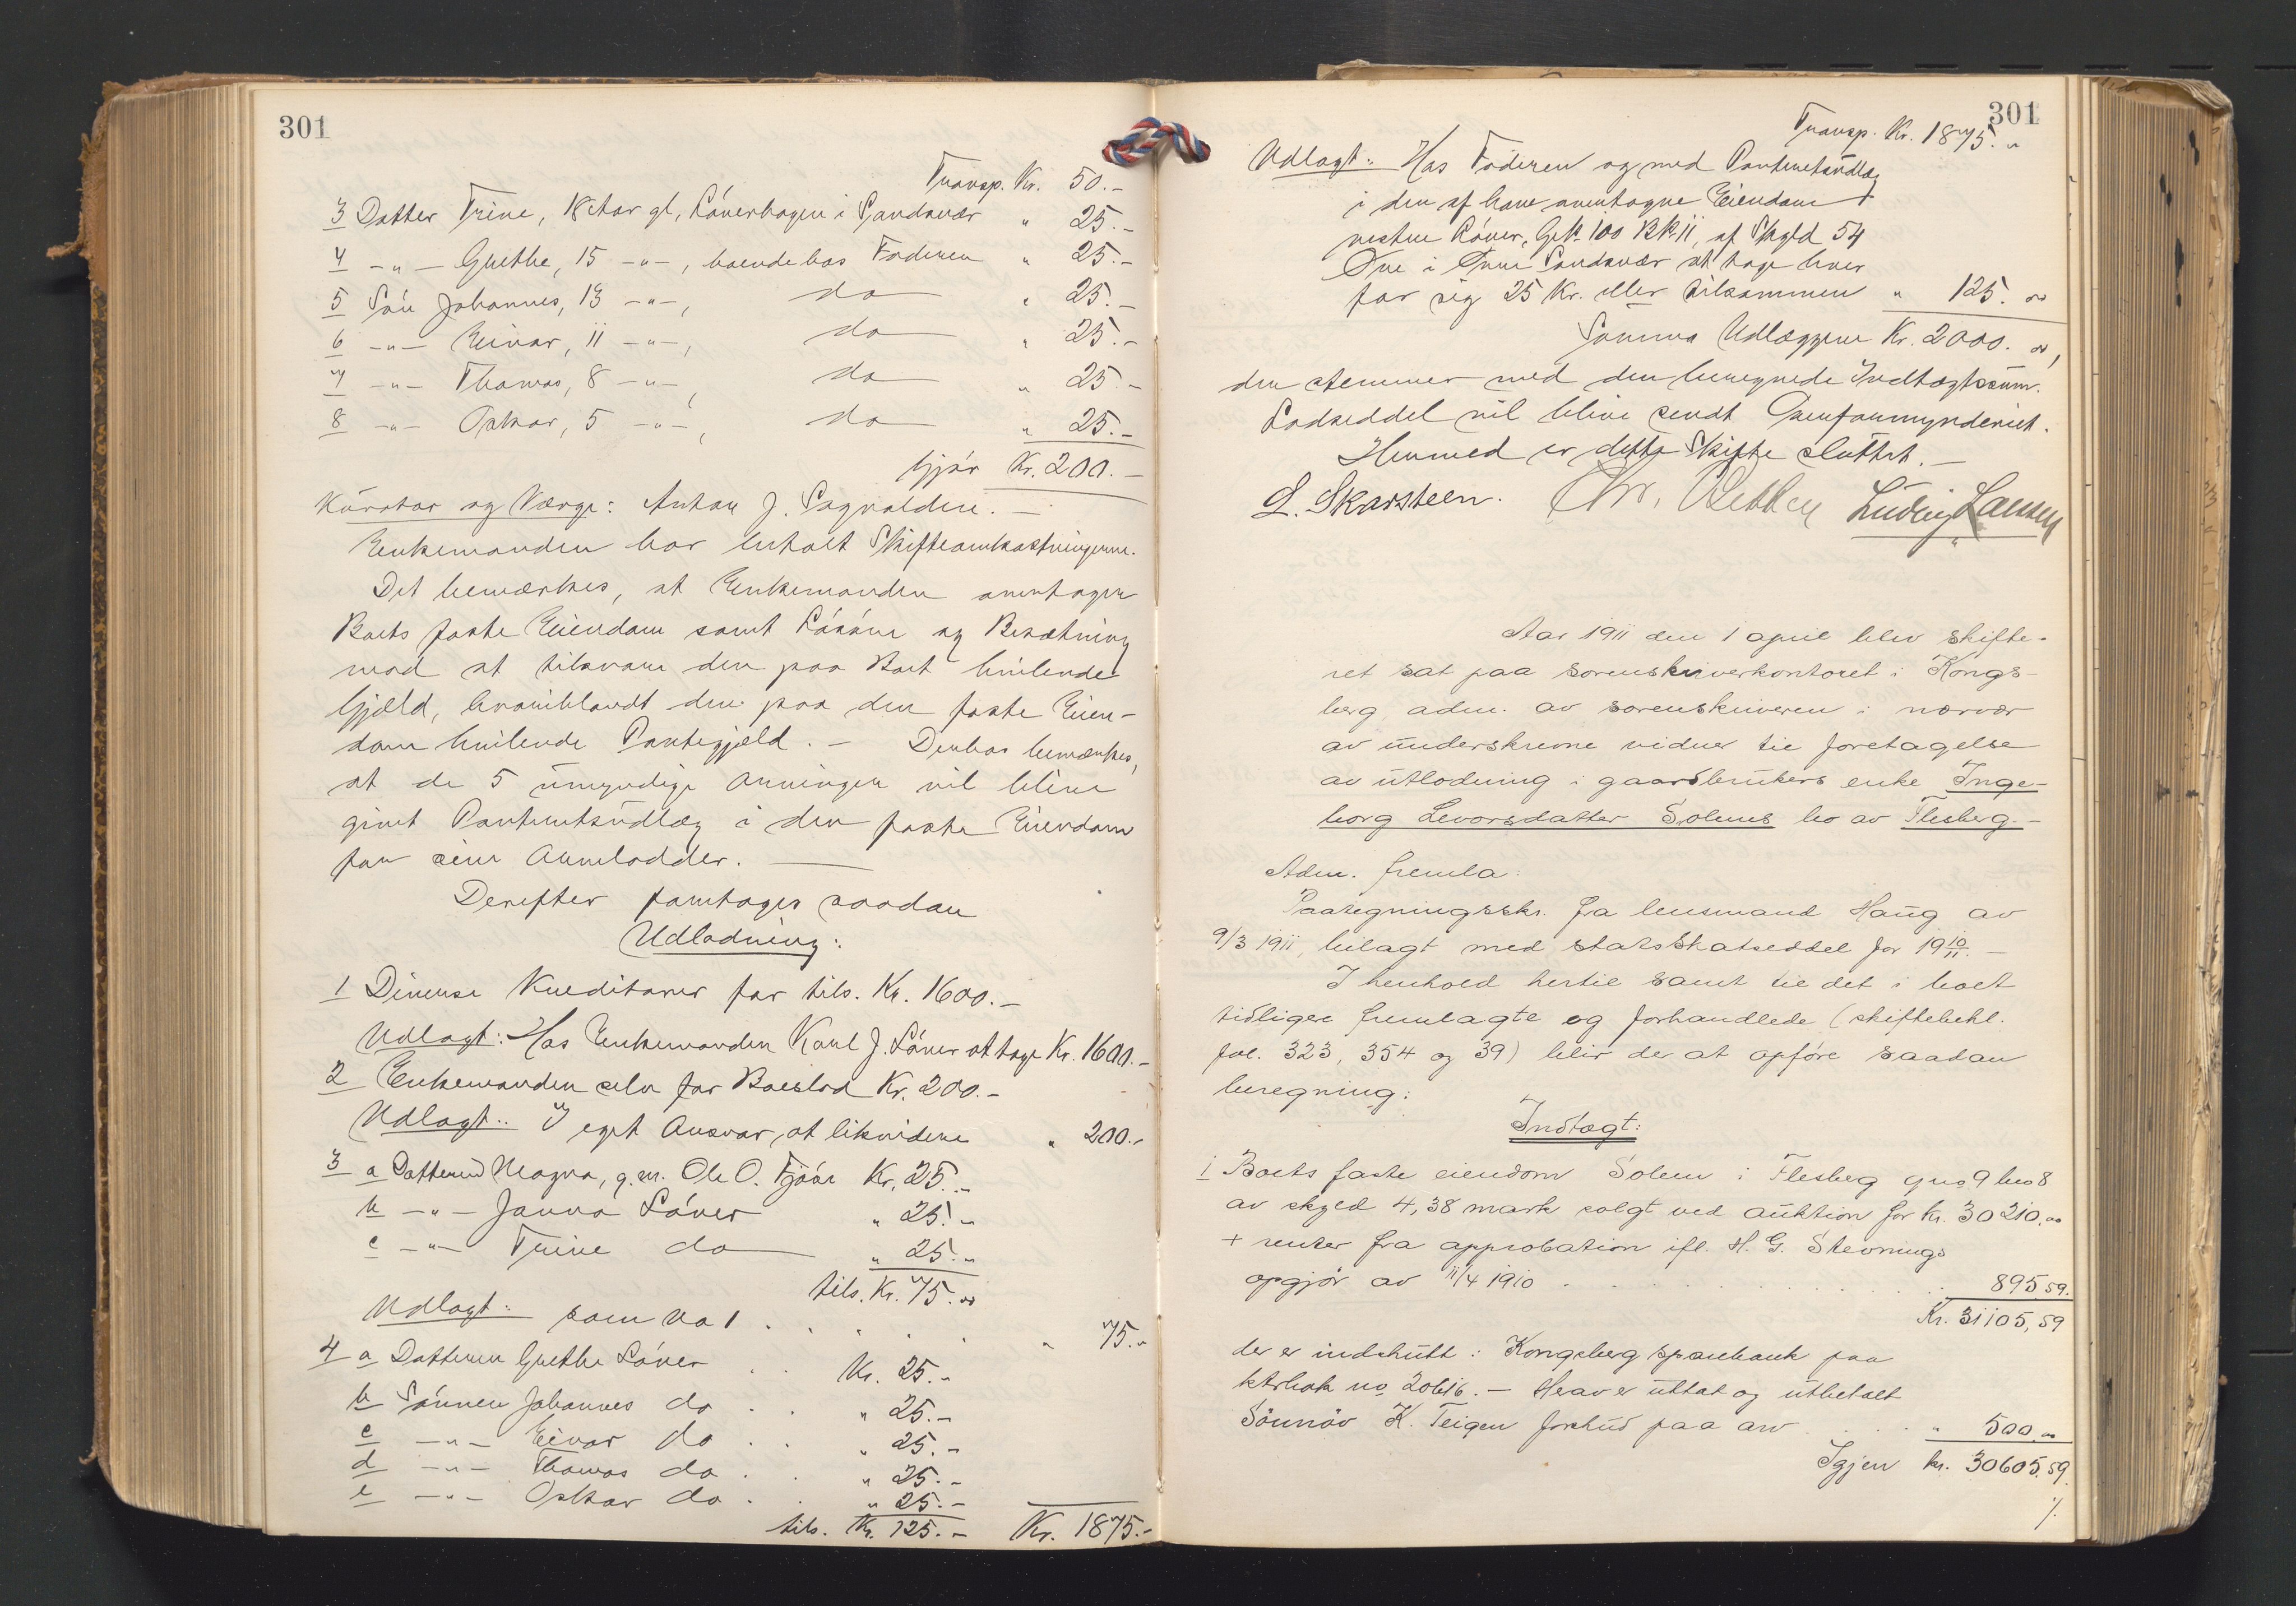 301
Transp. Kr. 50.-
3 Datter Trine, 18 Aar gl, Løverhagen i Sandsvær " 25.-
4 -"- Grethe, 15 -"-, boende hos Faderen " 25.-
5 Søn Johannes, 13 -"-, do " 25.-
6 -"- Einar, 11 -"-, do " 25.-
7 -"- Thomas, 8 -"-, do " 25.-
8 -"- Oskar, 5 -"-, do " 25.-
Gjør Kr. 200.-
Kurator og Værge: Anton J. Sagvolden.-
Enkemanden har betalt Skifteomkostningerne.
Det bemærkes, at Enkemanden overtager
Boets faste Eiendom samt Løsøre og Besætning
mod at tilsvare den paa Boet hvilende
Gjæld, hvoriblandt den paa den faste Eien-
dom hvilende Pantegjæld. - Derhos bemærkes,
at de 5 umyndige Arvinger vil blive
givet Panteretsudlæg i den faste Eiendom
for sine Arvelodder.
Derefter foretoges saadan
Udlodning:
1 Diverse Kreditorer for tils. Kr. 1600.-
Udlagt: Hos Enkemanden Karl J. Løver at tage Kr. 1600.-
2 Enkemanden selv for Boeslod Kr. 200.-
Udlagt: I eget Ansvar, at likvidere " 200.-
3 a Datteren Magna, g. m. Ole O. Kr. 25.-
b -"- Janna Løver " 25.-
c -"- Trine do " 25.-
tils. Kr. 75.00
Udlagt: som No 1 . . . . . " 75.-
4 a Datteren Grethe Løver . . Kr. 25.-
b Sønnen Johannes do . . " 25.-
c -"- Einar do . . " 25.-
d -"- Thomas do . . " 25.-
e -"- Oskar do . . " 25.-
tils. Kr. 125.- Kr. 1875.-
301
Transp. Kr. 1875.-
Udlagt: Hos Faderen og med Panteretsudlæg
i den af ham overtagne Eiendom
vestre Løver, G.No 100 B.No 11, af Skyld 54
Øre i Øvre Sandsvær at tage hver
for sig 25 Kr. eller tilsammen " 125.00
Summa Udlæggene Kr. 2000.00,
der stemmer med den beregnede Indtægtssum.
Lodseddel vil blive sendt Overformynderiet.
Hermed er dette Skifte sluttet.-
L. Skarsteen. Chr. Ludvig Larssen
Aar 1911 den 1 april blev skifte-
ret sat paa sorenskriverkontoret i Kongs-
berg adm. av sorenskriveren i nærvær
av underskrevne vidner til foretagelse
av utlodning i gaardbrukers enke Inge-
borg Levorsdatter Solems bo av Flesberg.-
Adm. fremla:
Paategningsskr. fra lensmand Haug av
9/3 1911, bilagt med statsskatseddel for 19 10/11.-
I henhold hertil samt til det i boet
tidligere fremlagte og forhandlede (skiftebehl.
fol. 323, 354 og 39) blir der at opføre saadan
beregning:
Indtægt:
1 Boets faste eiendom Solem i Flesberg gno 9 bno 8
av skyld 4,38 mark solgt ved auktion for kr. 30210.00
+ renter fra approbation ifl. H. G. Stevnings
opgjør av 11/4 1910 . . . . . . . . . 895.59.
Kr. 31105,59
der er indskutt i Kongsberg sparebank paa
ktrbok no 20616.- Herav er uttat og utbetalt
Sønnøv K. Teigen forskud paa arv . . . " 500.00
Igjen kr. 30605.59.
⁒